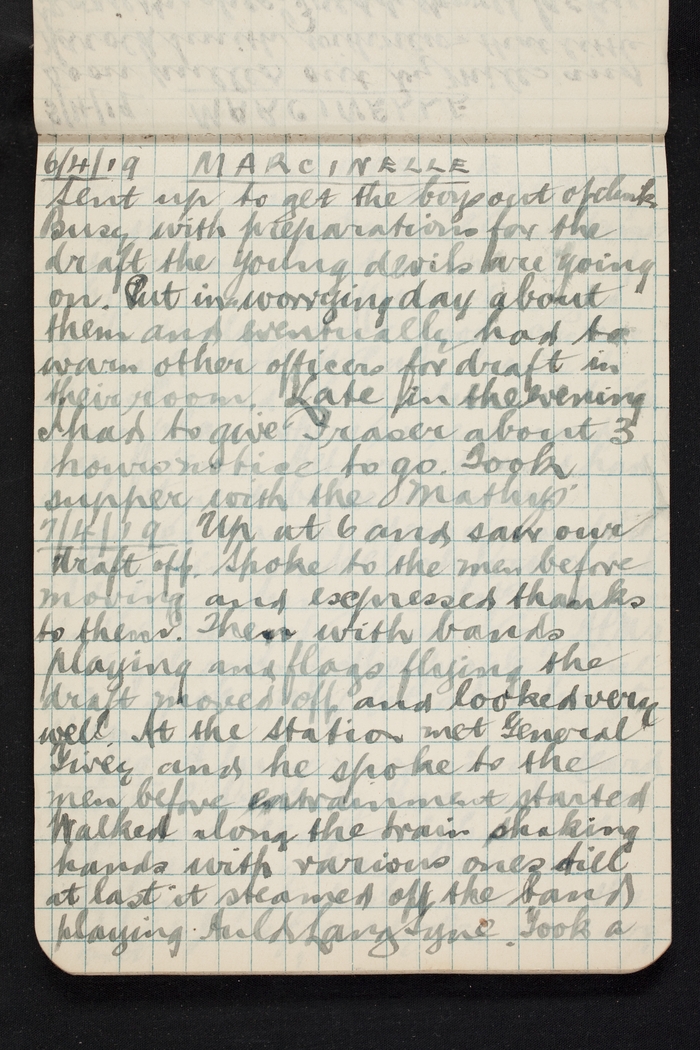 6/4/19 MARCINELLE
Sent up to get the boys out of clink.
Busy with preparations for the
draft the young devils are going
on. Put in worrying day about
them and eventually had to
warn other officers for draft in
their room. Late in the evening
I had to give Fraser about 3
hours notice to go. Took
supper with the Mathys'
7/4/19 Up at 6 and saw our
draft off. Spoke to the men before
moving and expressed thanks
to them. Then with bands
playing and flags flying the
draft moved off and looked very
well. At the station met General
Tivey and he spoke to the
men before entrainment started
Walked along the train shaking
hands with various ones till
at last it steamed off the band
playing Auld Lang Syne. Took a